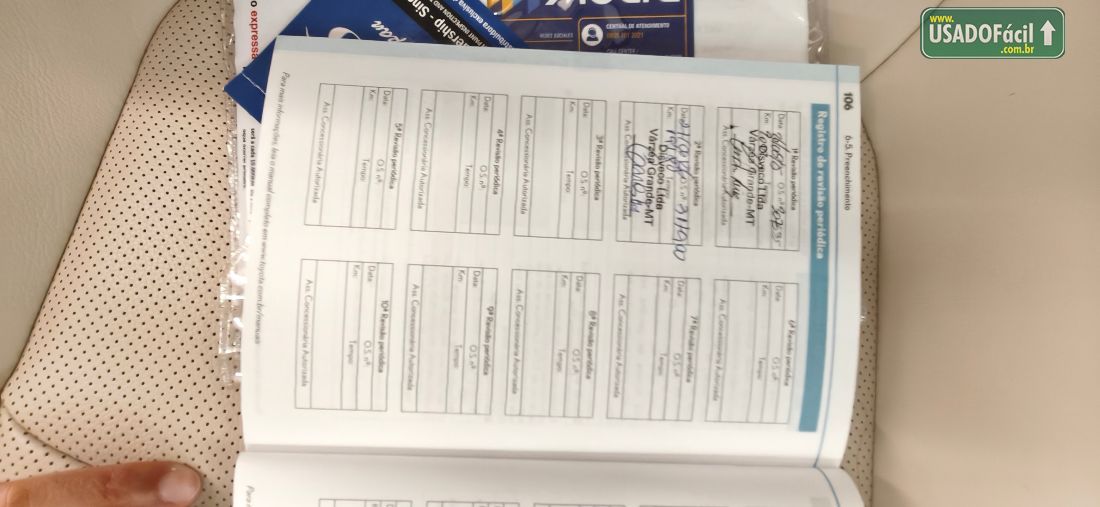 www.
USADOFácil
.com.br
CENTRAL DE ATENDIMENTO
REDES SOCIAIS
106 6-5. Preenchimento
Registro de revisão periódica
1ª Revisão periódica
Data: O.S. nº:
Km:
Disveco Ltda
Várzea Grande-MT
Ass. Concessionária Autorizada
2ª Revisão periódica
Data: O.S. nº: 311900
Km:
Disveco Ltda
Várzea Grande-MT
Ass. Concessionária Autorizada
3ª Revisão periódica
Data: O.S. nº:
Km: Tempo:
Ass. Concessionária Autorizada
4ª Revisão periódica
Data: O.S. nº:
Km: Tempo:
Ass. Concessionária Autorizada
5ª Revisão periódica
Data: O.S. nº:
Km: Tempo:
Ass. Concessionária Autorizada
6ª Revisão periódica
Data: O.S. nº:
Km: Tempo:
Ass. Concessionária Autorizada
7ª Revisão periódica
Data: O.S. nº:
Km: Tempo:
Ass. Concessionária Autorizada
8ª Revisão periódica
Data: O.S. nº:
Km: Tempo:
Ass. Concessionária Autorizada
9ª Revisão periódica
Data: O.S. nº:
Km: Tempo:
Ass. Concessionária Autorizada
10ª Revisão periódica
Data: O.S. nº:
Km: Tempo:
Ass. Concessionária Autorizada
Para mais informações, leia o manual completo em www.toyota.com.br/manuais